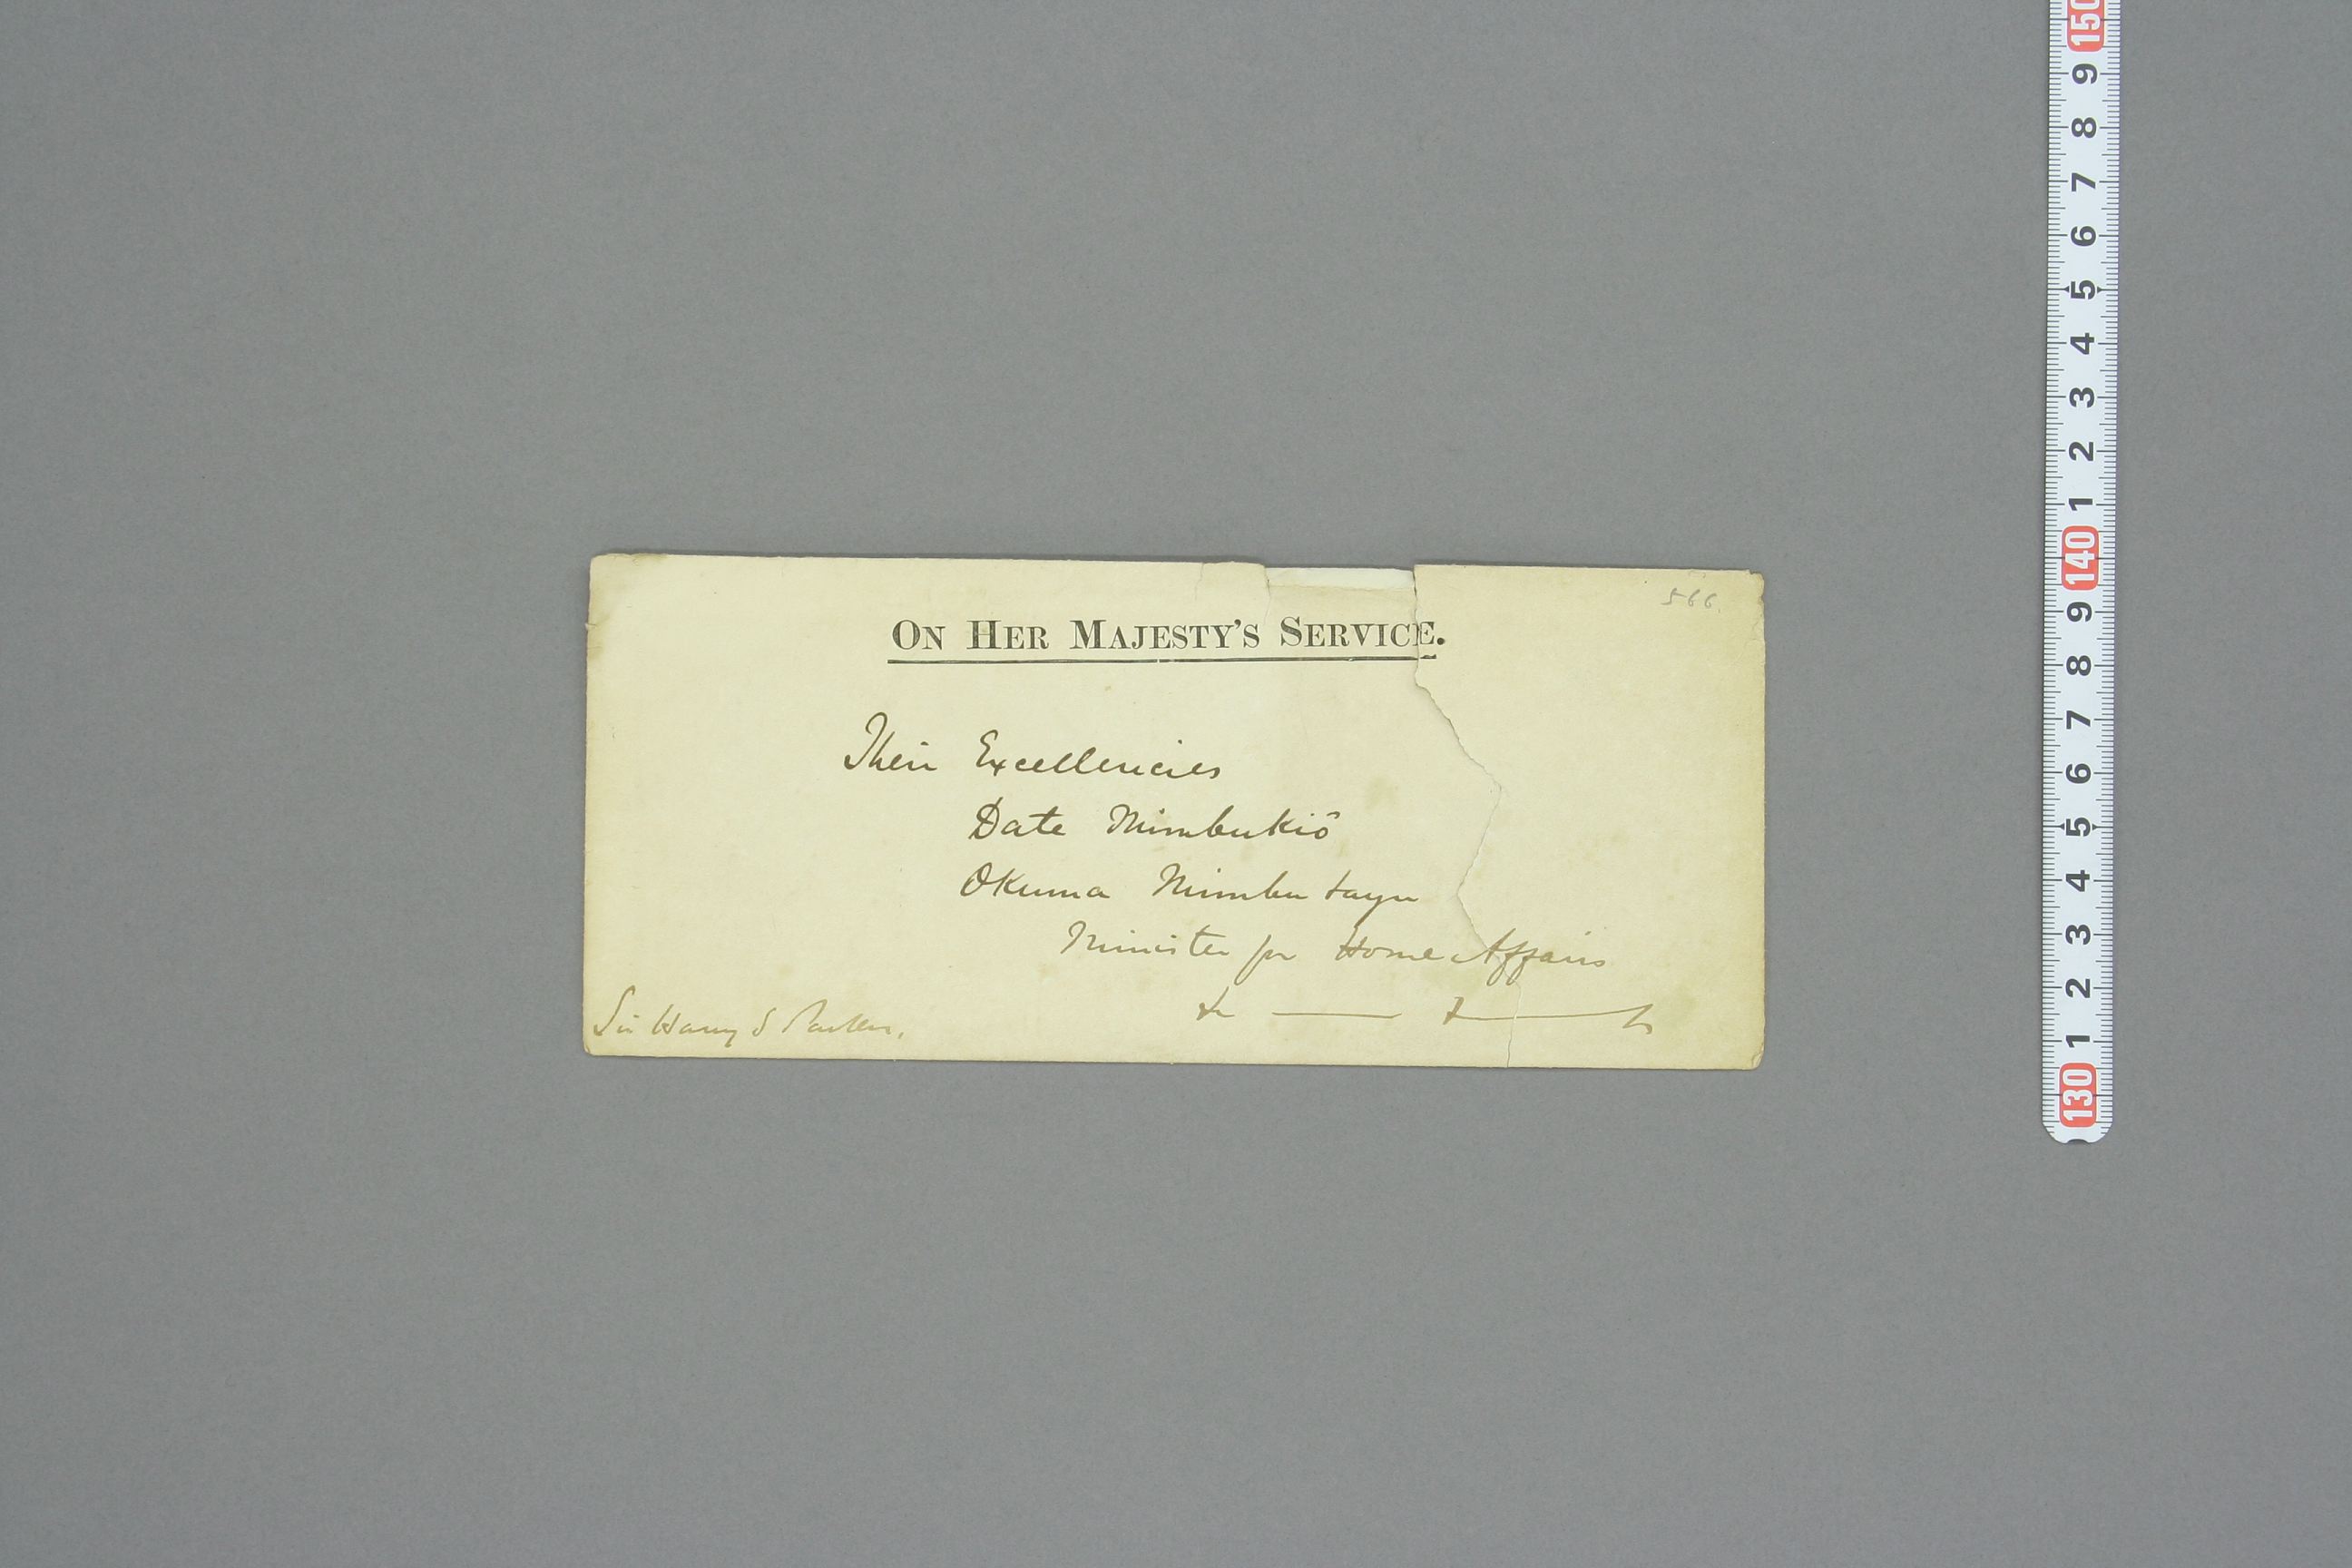 566.
ON HER MAJESTY'S SERVICE.
Their Excellencies
Date Mimbukiō
Okuma Mimbu tayu
Minister for Home Affairs
&c &c
Sir Harry S Parkes.
150
9
8
7
6
5
4
3
2
1
140
9
8
7
6
5
4
3
2
1
130